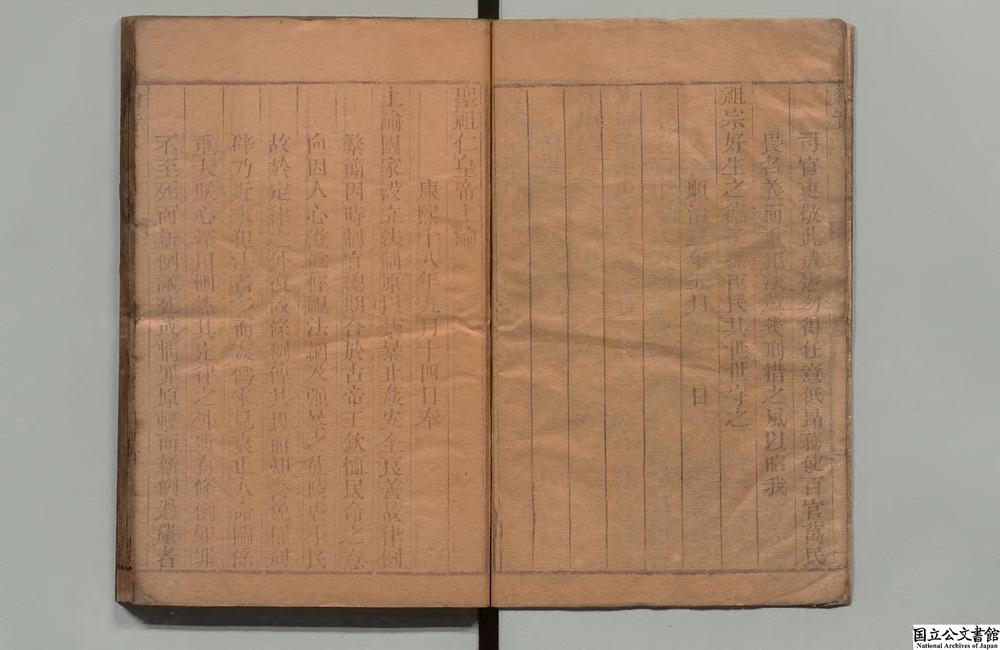 司官吏敬此成憲勿得任意低昂務使百官萬民
畏名義而重犯法冀幾刑措之風以昭我
祖宗好生之德　　臣民其世世守之
順治三年五月　　　日
聖祖仁皇帝上諭
康熙十八年九月十四日奉
上諭國家設立法制原以禁暴止姦安全良善故律例
繁簡因時制宜總期合於古帝王欽恤民命之意
向因人心滋僞輕視法網及強暴之徒陵虐小民
故於定律之外復設條例俾其畏而知警免罹刑
辟乃近來犯法者多而姦僞未見衰止人命關係
重大朕心深用惻然其定律之外所有條例如罪
不至死而新例議死或情罪原輕而新例過嚴者
国立公文書館
National Archives of Japan